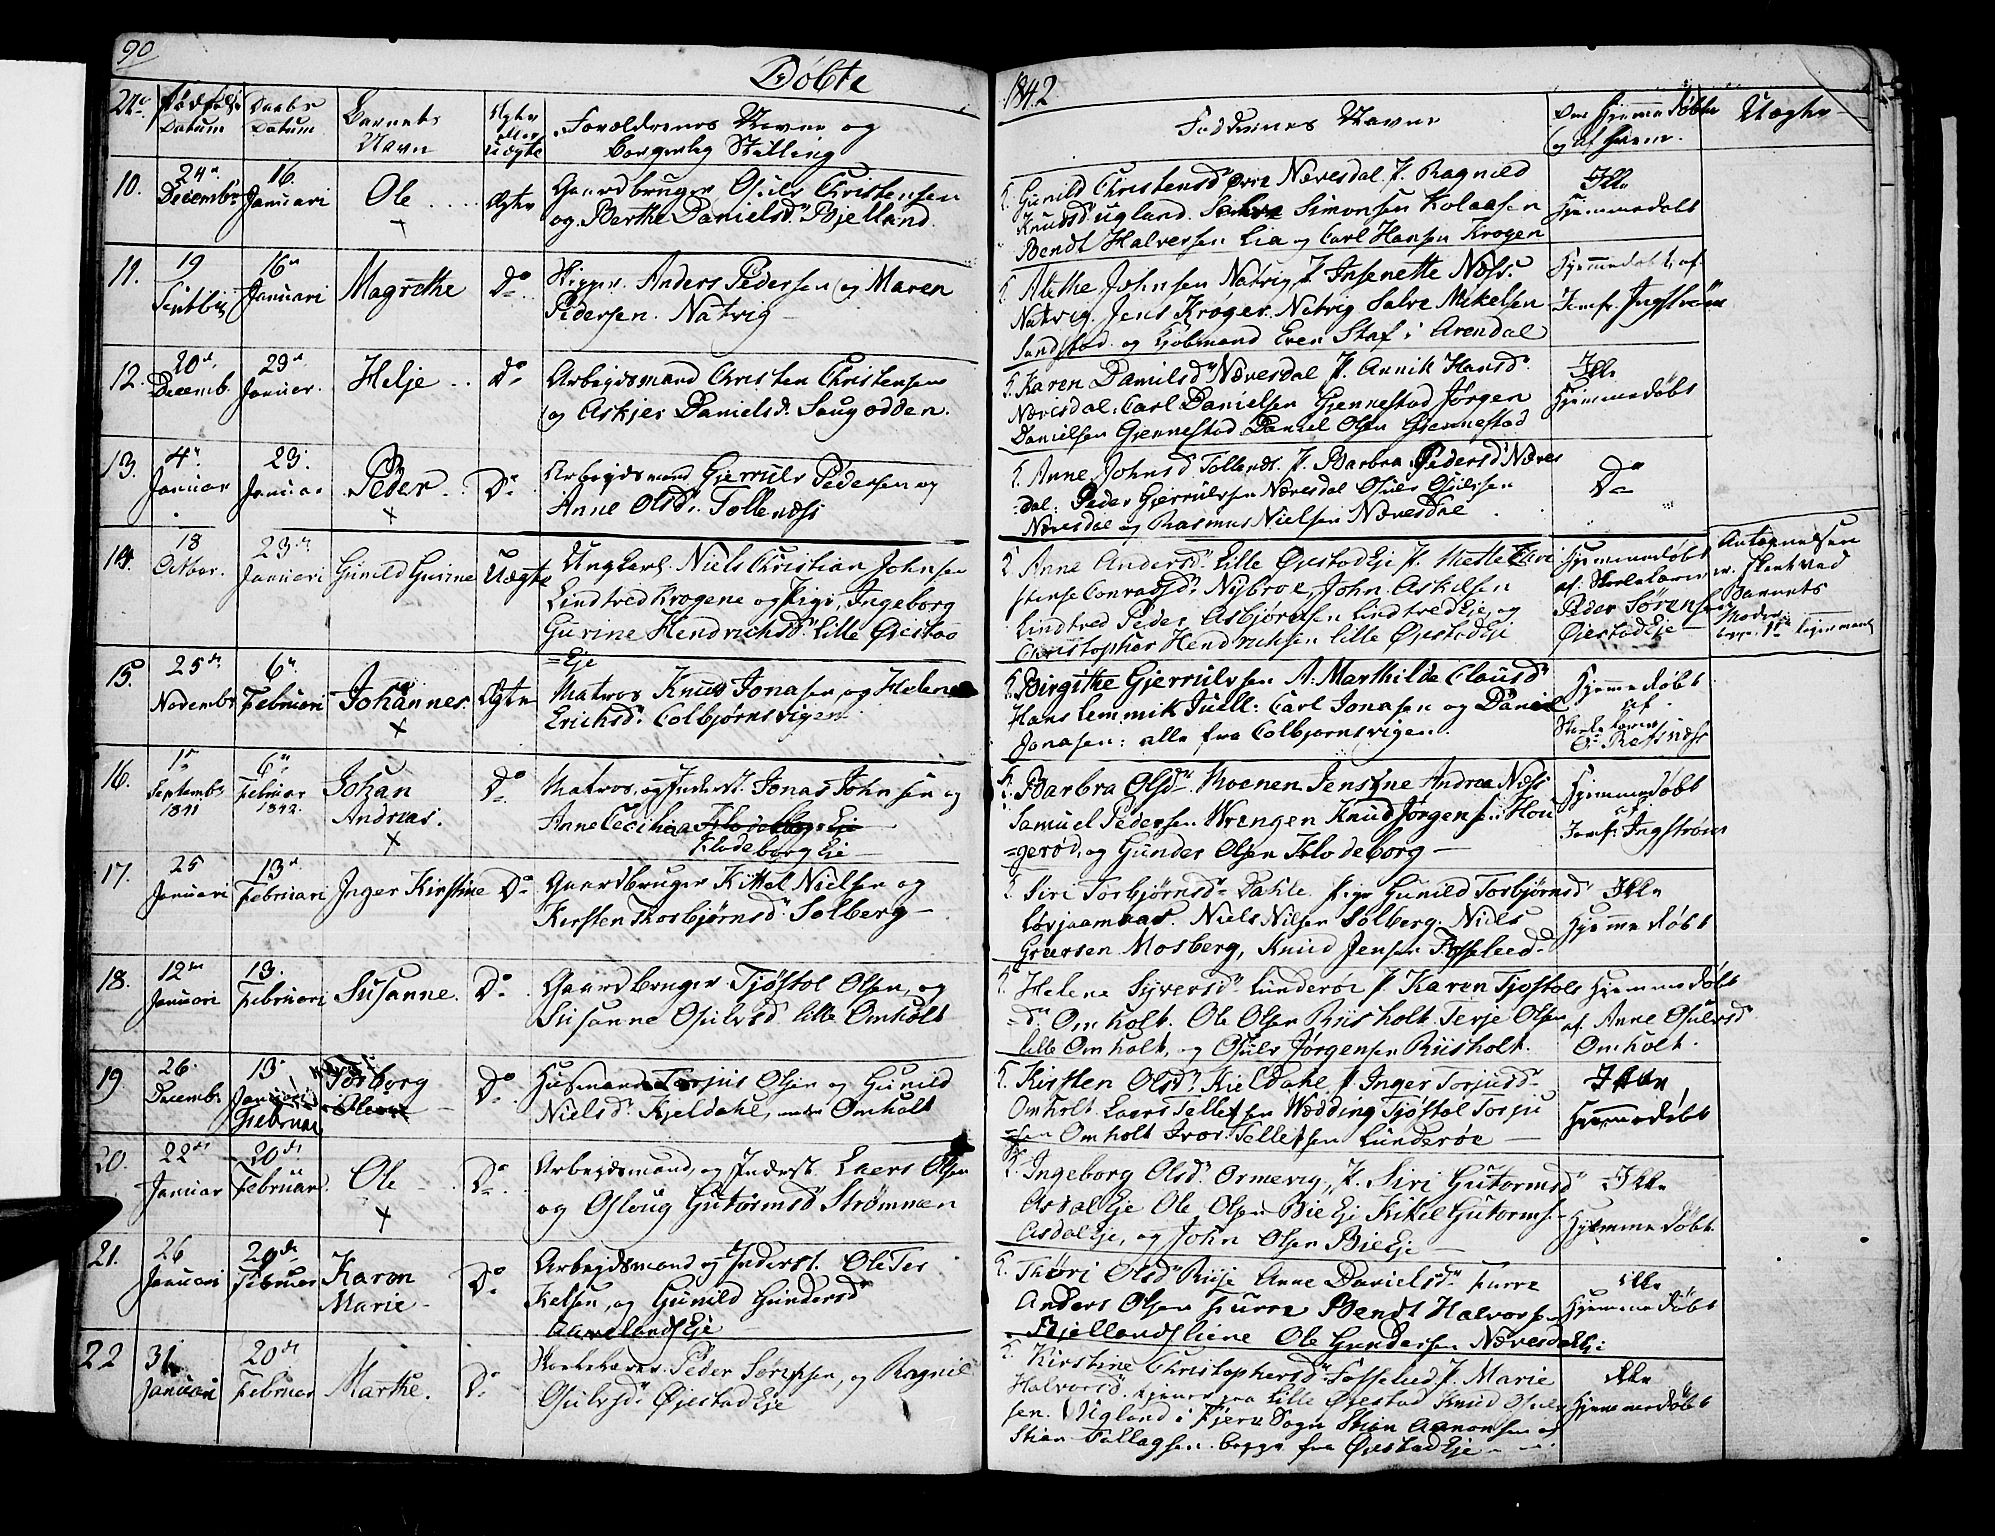 90
Döbte
1842
No
Födsels Datum
Daabs Datum
Barnets Navn
Ægte eller Uægte
Forældrenes Navne og
Borgerlig Stilling
Faddernes Navne
Om Hjemmedöbte
og af hvem.
Uægte
10.
24de Decembr
16 Januari
Ole
Ægte
Gaardbruger Osuls Christensen
og Berthe Danielsd. Bjelland.
Gunild Christensd Næresdal P. Ragnild
Knudsd Ugland. Simonsen Kolaasen
Bendt Halversen Lia og Carl Hansen Krogen
Ikke
Hjemmedöbt
11.
19 Septbr
16de Januari
Magrethe
Do
Anders Pedersen og Maren
Pedersen. Natvig
Alethe Johnsen Natvig P. Insenette Næss.
Natvig. Jens Kröger. Natvig Salve Mikelsen
Sandstad og Kobmand Even Staf i Arendal
Hjemmedöbt af
Jomfr Ingström
12.
20de Decemb.
23de Januar.
Helje
Do
Arbeydsmand Christen Christensen
og Askjer Danielsd. Saugodden.
Karen Danielsd Næresdal P. Annik Hansd
Næresdal. Carl Danielsen Gjennestad Jörgen
Danielsen Gjennestad Daniel Olsen Gjennestad
Ikke
Hjemmedöbt
13.
4de Januar
23 Januar
Peder
Do
Arbeydsmand Gjerrulv Pedersen og
Anne Olsd. Tollenæss
Anne Johnsd Tollends. P. Barbra Pedersd Næres
dal. Peder Gjerrulvsen Næresdal Osuls Osulsen
Næresdal og Rasmus Nielsen Næresdal
Do
14.
18 Octobr.
23de Januari
Gunild Gurine
Uægte
Ungkarl. Niels Christian Johnsen
Lindtved Krogene og Pige, Ingeborg
Gurine Hendrichsd. Lille Öiestad
Eje
Anne Andersd. Lille Öiestad Eje P. Mette Chri
stense Conradsd. Nybroe, John Askelsen
Lindtved Peder Asbjörnsen Lindtved Eje, og
Christopher Hendrichsen Lille Öjestad Eje
Hjemmedöbt
af Skolelærer
Peder Sörensen
Öjestad Eje
Antegnelsen
er skeet ved
Barnets
Moder
15.
25de Novembr
6te Februari
Johannes
Ægte
Matros Knud Jonasen og Helene
Erichsd. Colbjörnsvigen
Birgithe Gjerrulvsen M. Marthilde Clausd
Hans Lemmik Juell. Carl Jonasen og Daniel
Jonasen: alle fra Colbjornsvigen.
Hjemmedöbt
af
Skolelærer
O. Refsnæss
16.
15 Septembr 1841
6te Februar 1842
Johan
Andreas.
Do
Matros, og Inderst. Jonas Johnsen og
Anne Cecilia
Flodeborg Eje
Barbra Olsd. Moenen Jensine Andrea Næss
Samuel Pedersen Wrengen Knud Jörgensen Hou
geröd, og Gunder Olsen Flodeborg
Hjemmedöbt
af
Jomfr. Ingström
17.
25 Januari
13de Februari
Inger Kirstine
Do
Gaardbruger Kittel Nielsen og
Kirsten Thorbjörnsd. Solberg
Siri Torbjörnsd. Dahle Pige Gunild Torbjörnsd
Lövjaamaas. Niels Nilsen Solberg. Niels
Greersen Mosberg, Knud Jensen Fosseleed
Ikke
Hjemmedöbt
18.
12te Januari
13. Februari
Susanne.
Do
Gaardbruger Tjöstol Olsen, og
Susanne Osulvsd. Lille Omholt
Helene Syversd. Lunderöe P. Karen Tjostols
d. Omholt. Ole Olsen Riisholt. Terje Olsen
Lille Omholt, og Osuls Jörgensen Riisholt.
Hjemmedöbt
af. Anne Osulvsd
Omholt.
19
26. Decembr
13. Februar
Torborg
Do
Husmand Torjus Olsen og Gunild
Nielsd. Kjeldahl, Omholt
Kirsten Olsd. Kieldahl P. Inger Torjusd.
Omholt Laers Tellefsen Wedding Tjöstol Torju
sen Omholt Ivar Tellefsen Lunderöe
Ikke
Hjemmedöbt
20.
22de Januar
20de Februar
Ole
Do
Arbeydsmand, og Inderst. Laers Olsen
og Oslaug Gutormsd Strömmen
Ingeborg Olsd. Ormevig, P. Siri Gutormsd
Asdal Eje Ole Olsen Bie Eje Kikel Gutorms.
Asdal Eje, og John Olsen Bie Eje
Ikke
Hjemmedöbt.
21.
26 Januari
20de Februar
Karen
Marie
Do
Arbeydsmand og Inderst. Ole Ter
kelsen, og Gunild Gundersd
Aavelands Eje
Thöri Olsd Riise Anne Danielsd. Furre
Anders Olsen Furre Bendt Halvors.
Bjellandsliene Ole Gundersen Næresdal Eje
Ikke
Hjemmedöbt
22
31 Januari
20de Februar
Marthe.
Do
Skolelærer. Peder Sörensen, og Ragnil
Osulvsd. Öjestad Eje
Kirstine Christophersd. Fosselied P. Marie
Halvorsd. Lille Öiestad Knud Osulv
sen. Ugland i Fjere Sogn Stian Aanonsen og
Stian Tallagsen. begge fra Öiestad Eje
Ikke
Hjemmedöbt